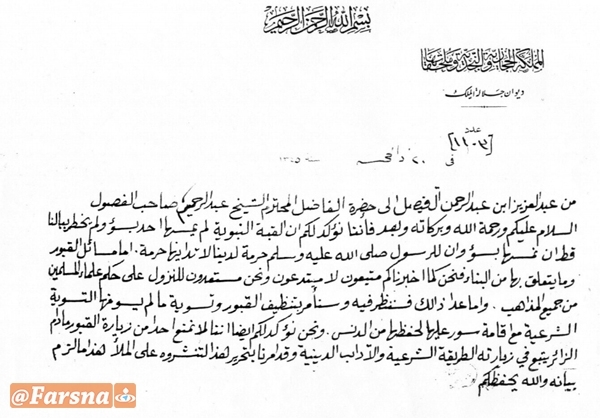 بسم الله الرحمن الرحيم
المملكة الحجازية والنجدية وملحقاتها
ديوان جلالة الملك
عدد
[١١٠٣]
في ٢٠ ذا الحجة سنة ١٣٤٥
من عبدالعزيز ابن عبدالرحمن آل فيصل الى حضرة الفاضل المحترم الشيخ عبدالرحيم صاحب الفصول
السلام عليكم ورحمة الله وبركاته وبعد فأننا نؤكد لكم ان القبة النبوية لم يمسها احد بسؤ ولم يخطر ببالنا
قط ان نمسها بسؤ وان للرسول صلى الله عليه وسلم حرمة لدينا لا تدانيها حرمة. اما مسائل القبور
وما يتعلق بها من البناء فنحن كما اخبرناكم متبعون لا مبتدعون ونحن مستعدون للنزول على حكم علماء المسلمين
من جميع المذاهب. واما عدا ذالك فسننظر فيه وسنأمر بتنظيف القبور وتسوية مالم يسو منها التسوية
الشرعية مع اقامة سور عليها لحفظها من الدنس. ونحن نؤكد لكم ايضا اننا لا نمنع احدا من زيارة القبور مادام
الزائر يتبع في زيارته الطريقة الشرعية والآداب الدينية وقد امرنا بتحرير هذا لتنشروه على الملأ هذا ما لزم
بيانه والله يحفظكم
@Farsna